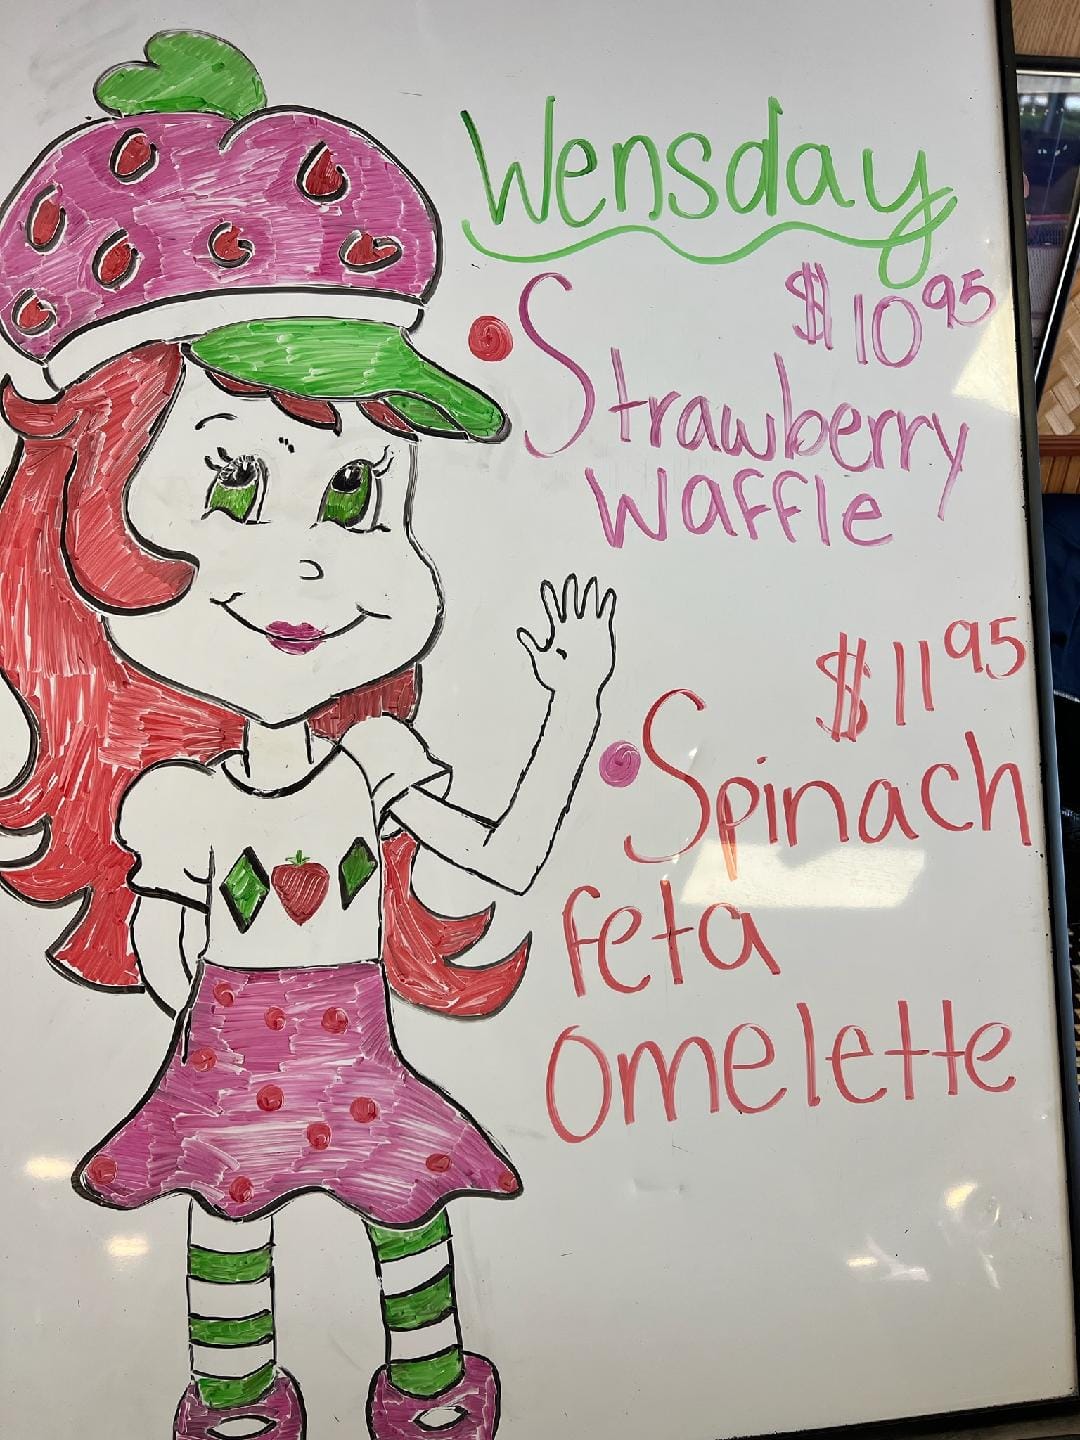 Wensday
$10.95
Strawberry
Waffle
$11.95
Spinach
feta
Omelette